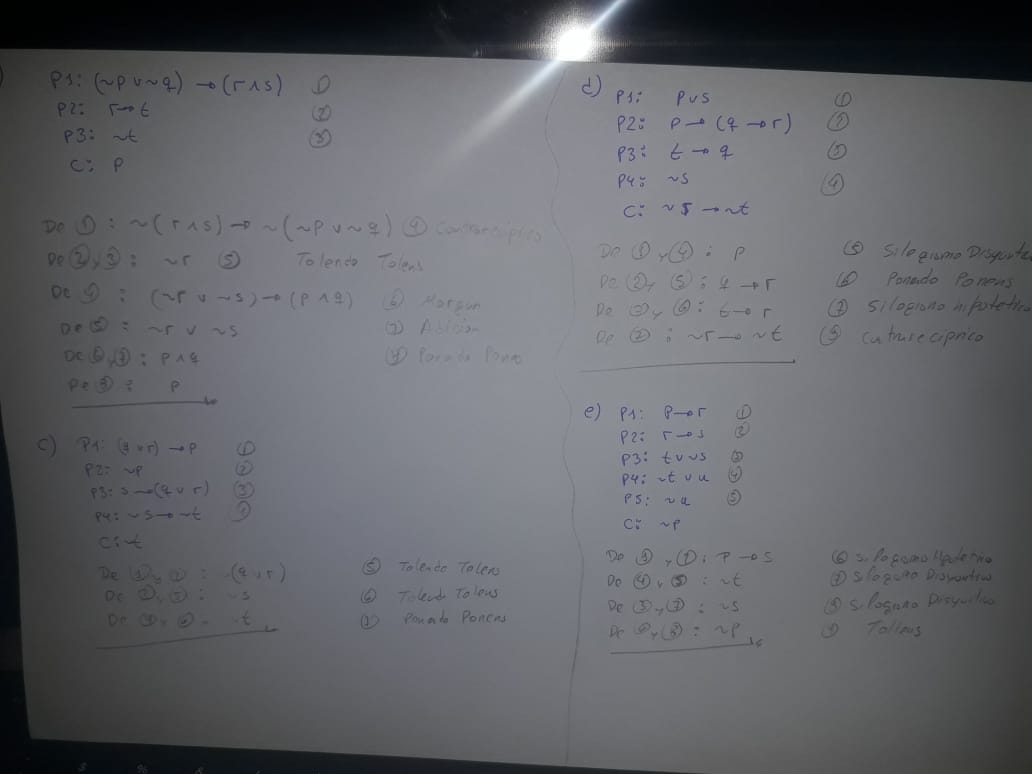 P1: (~p ∨ ~q) → (r ∧ s) ①
P2: r → t ②
P3: ~t ③
C: p
De ① : ~(r ∧ s) → ~(~p ∨ ~q) ④ Contrareciproco
De ② y ③ : ~r ⑤ Tolendo Tolens
De ④ : (~r ∨ ~s) → (p ∧ q) ⑥ Morgan
De ⑤ : ~r ∨ ~s ⑦ Adicion
De ⑥ y ⑦ : p ∧ q Ponendo Ponens
De : p
c) P1: (q ∨ r) → p ①
P2: ~p ②
P3: s → (q ∨ r) ③
P4: ~s → ~t ④
C: ~t
De ① y ② : ~(q ∨ r) ⑤ Tolendo Tolens
De : ~s ⑥ Tolendo Tolens
De : ~t ⑦ Ponendo Ponens
d) P1: p ∨ s ①
P2: p → (q → r) ②
P3: t → q ③
P4: ~s ④
C: ~r → ~t
De ① y ④ : p ⑤ Silogismo Disyuntivo
De ② y ⑤ : q → r ⑥ Ponendo Ponens
De ③ y ⑥ : t → r ⑦ Silogismo hipotetico
De ⑦ : ~r → ~t
e) P1: p → r ①
P2: r → s ②
P3: t ∨ ~s ③
P4: ~t ∨ u ④
P5: ~u ⑤
C: ~p
De : p → s ⑥ Silogismo Hipotetico
De ④ y ⑤ : ~t ⑦ Silogismo Disyuntivo
De ③ y ⑦ : ~s ⑧ Silogismo Disyuntivo
De ⑥ y ⑧ : ~p Tollens